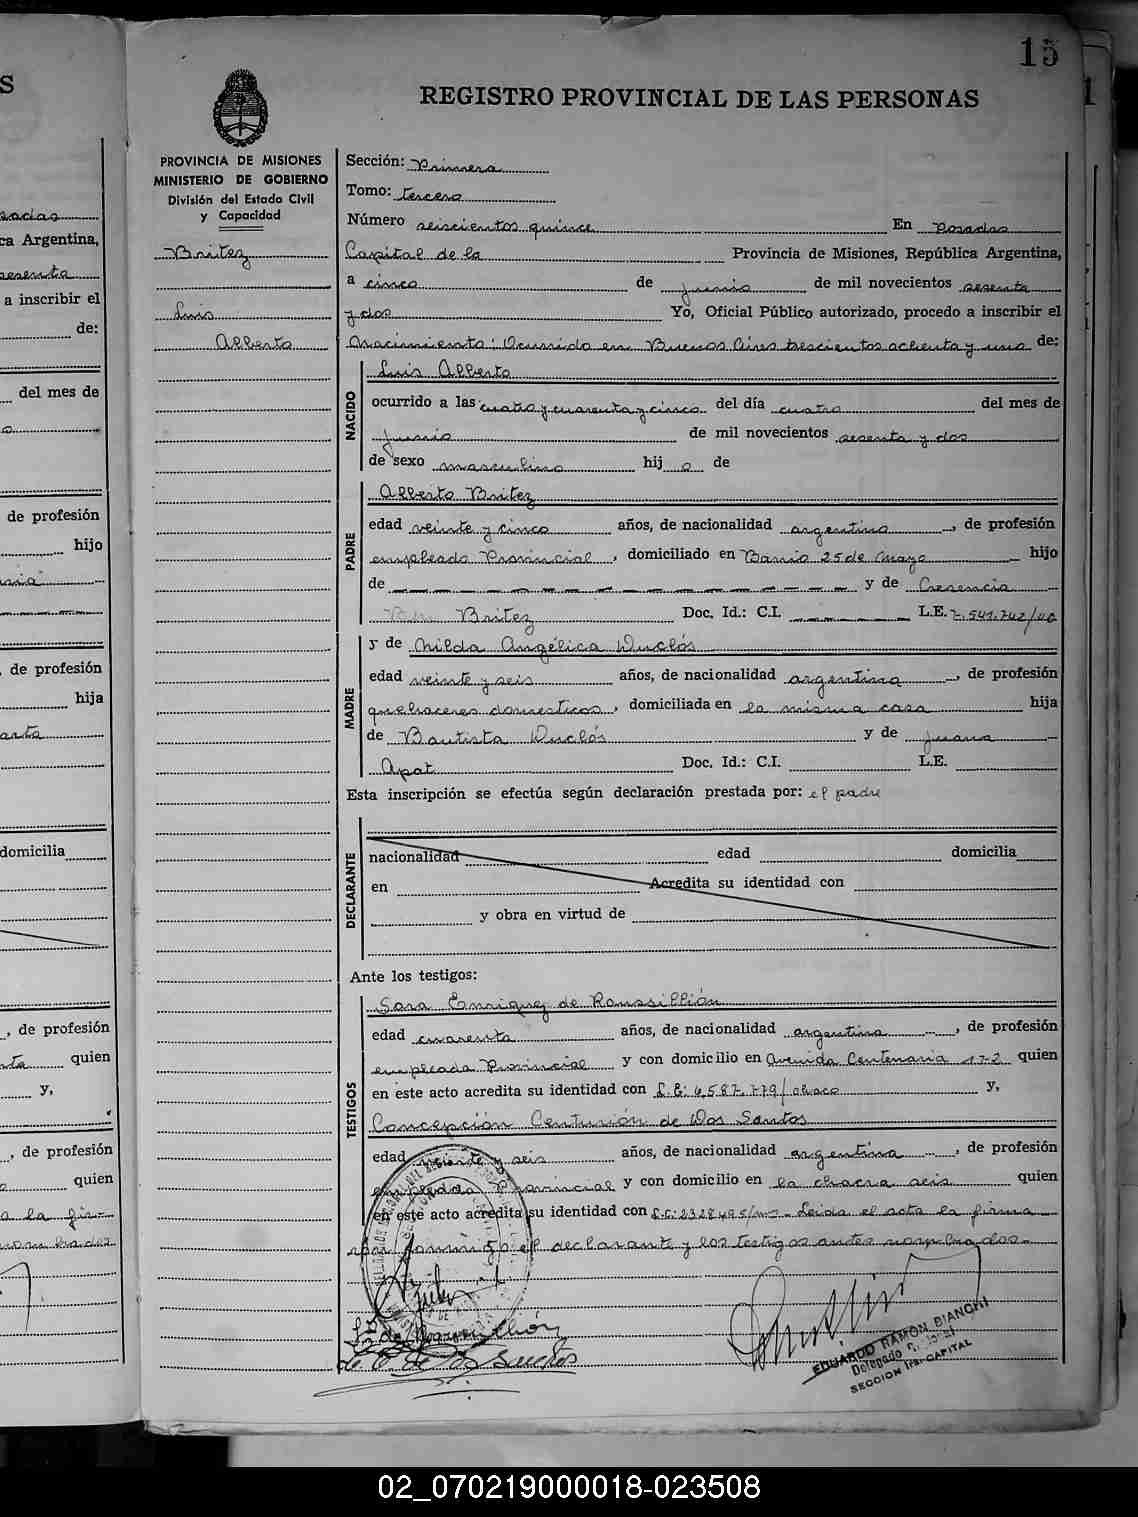 15
REGISTRO PROVINCIAL DE LAS PERSONAS
PROVINCIA DE MISIONES
MINISTERIO DE GOBIERNO
División del Estado Civil
y Capacidad
Britez
Luis
Alberto
Sección: Primera
Tomo: tercero
Número seiscientos quince En Posadas
Capital de la Provincia de Misiones, República Argentina,
a cinco de junio de mil novecientos sesenta
y dos Yo, Oficial Público autorizado, procedo a inscribir el
Nacimiento: Ocurrido en Buenos Aires trescientos ochenta y uno de:
Luis Alberto
NACIDO
ocurrido a las cuatro y cuarenta y cinco del día cuatro del mes de
junio de mil novecientos sesenta y dos
de sexo masculino hij o de
PADRE
Alberto Britez
edad veinte y cinco años, de nacionalidad argentina, de profesión
empleado Provincial, domiciliado en Barrio 25 de Mayo hijo
de y de Cresencia
Britez Doc. Id.: C.I. L.E. 7.541.742/
MADRE
y de Nilda Angélica Duclós
edad veinte y seis años, de nacionalidad argentina, de profesión
quehaceres domesticos, domiciliada en la misma casa hija
de Bautista Duclós y de Juana
Apat Doc. Id.: C.I. L.E.
Esta inscripción se efectúa según declaración prestada por: el padre
DECLARANTE
nacionalidad edad domicilia
en Acredita su identidad con
y obra en virtud de
Ante los testigos:
TESTIGOS
Sara Enriquez de Roussillión
edad cuarenta años, de nacionalidad argentina, de profesión
empleada Provincial y con domicilio en Avenida Centenario 172 quien
en este acto acredita su identidad con L.C: 6.587.779/chaco y,
Concepción Centurión de Dos Santos
edad veinte y seis años, de nacionalidad argentina, de profesión
empleada Provincial y con domicilio en la chacra seis quien
en este acto acredita su identidad con L.C: 2328495/ms - Leida el acta la firma
por el declarante y los testigos antes nombrados.-
de C. de Dos Santos
EDUARDO RAMON BIANCHI
Delegado
SECCION 1ra. CAPITAL
S
ca Argentina,
sesenta
a inscribir el
de:
del mes de
de profesión
hijo
, de profesión
hija
domicilia
, de profesión
quien
y,
, de profesión
quien
a la fir-
02_070219000018-023508